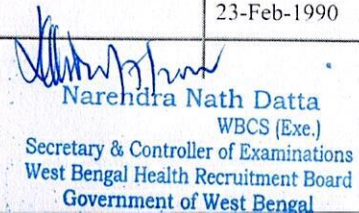 23-Feb-1990
Narendra Nath Datta
WBCS (Exe.)
Secretary & Controller of Examinations
West Bengal Health Recruitment Board
Government of West Bengal